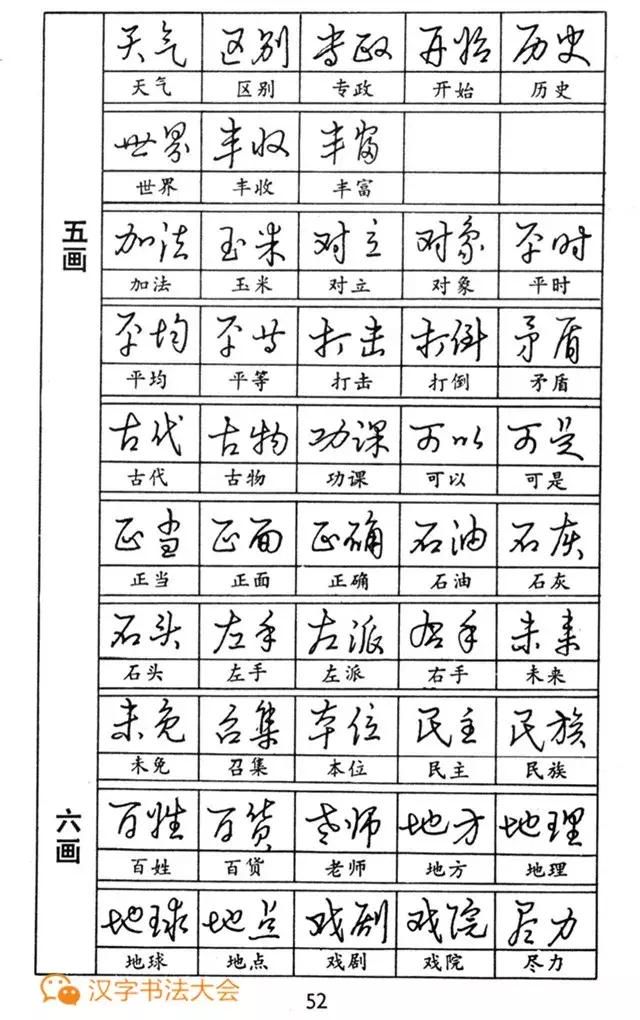 天气 区别 专政 开始 历史
天气 区别 专政 开始 历史
世界 丰收 丰富
世界 丰收 丰富
五画
加法 玉米 对立 对象 平时
加法 玉米 对立 对象 平时
平均 平等 打击 打倒 矛盾
平均 平等 打击 打倒 矛盾
古代 古物 功课 可以 可是
古代 古物 功课 可以 可是
正当 正面 正确 石油 石灰
正当 正面 正确 石油 石灰
石头 左手 左派 右手 未来
石头 左手 左派 右手 未来
未免 召集 本位 民主 民族
未免 召集 本位 民主 民族
六画
百姓 百货 老师 地方 地理
百姓 百货 老师 地方 地理
地球 地点 戏剧 戏院 尽力
地球 地点 戏剧 戏院 尽力
汉字书法大会
52